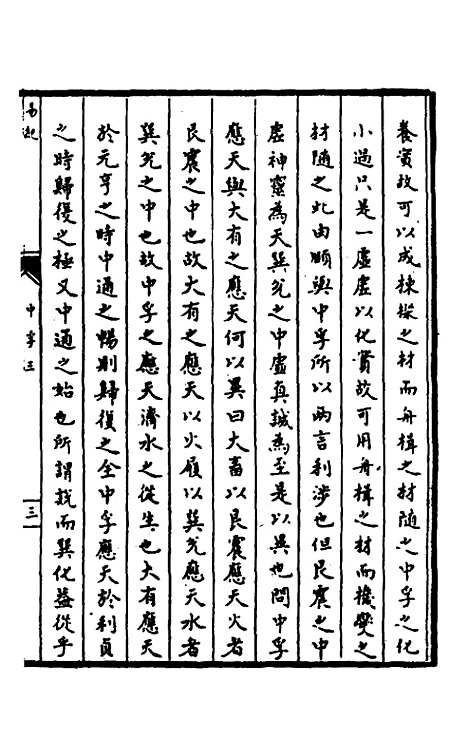 養實故可以成棟樑之材而舟楫之材隨之中孚之化
小過只是一虛虛以化實故可用舟楫之材而機變之
材隨之此由頤與中孚所以兩言利涉也但艮震之中
虛神靈為天巽兌之中虛真誠為至是以異也問中孚
應天與大有之應天何以異曰大畜以艮震應天火者
艮震之中也故大有之應天以火履以巽兌應天水者
巽兌之中也故中孚之應天濟水之從生也大有應天
於元亨之時中通之暢則歸復之全中孚應天於利貞
之時歸復之極又中通之始也所謂說而巽化益從乎
易
中孚
三